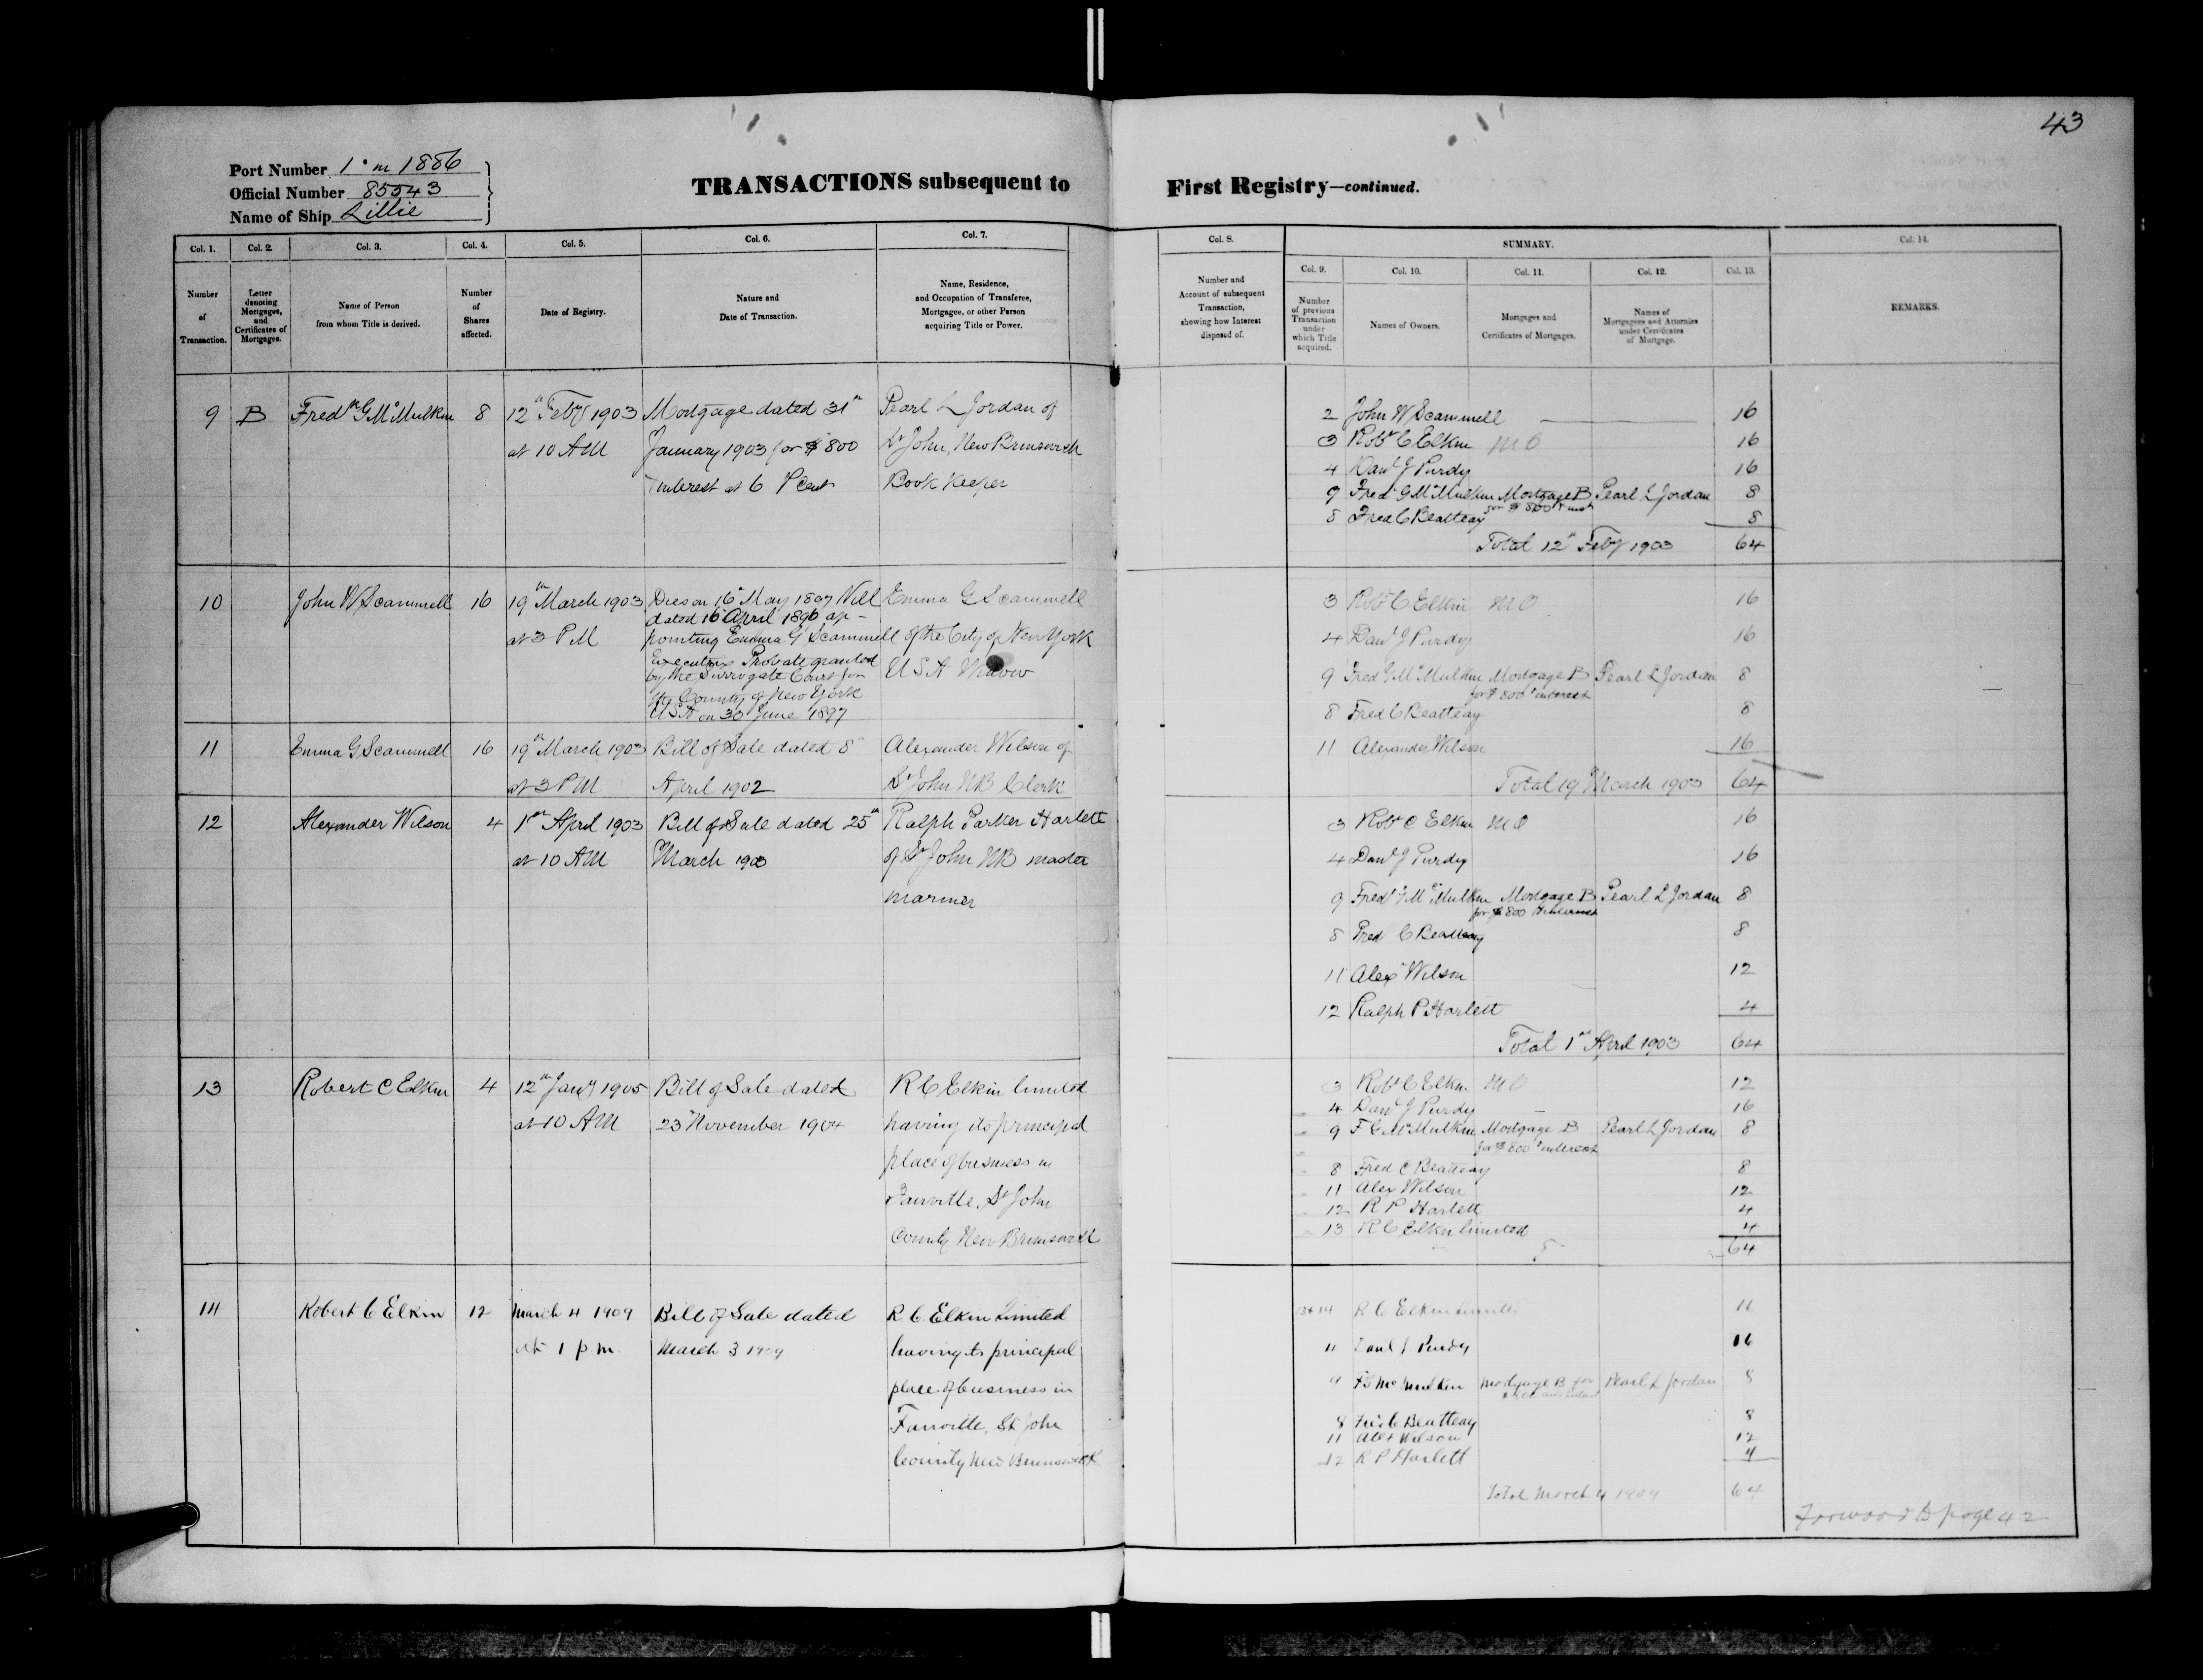 43
Port Number 1 in 1886
Official Number 85543
Name of Ship Lillie
TRANSACTIONS subsequent to First Registry—continued.
Col. 1. Col. 2. Col. 3. Col. 4. Col. 5. Col. 6. Col. 7. Col. 8. SUMMARY. Col. 14.
Col. 9. Col. 10. Col. 11. Col. 12. Col. 13.
Number of Transaction.
Letter denoting Mortgages, and Certificates of Mortgages.
Name of Person from whom Title is derived.
Number of Shares affected.
Date of Registry.
Nature and Date of Transaction.
Name, Residence, and Occupation of Transferee, Mortgagee, or other Person acquiring Title or Power.
Number and Account of subsequent Transaction, showing how Interest disposed of.
Number of previous Transaction under which Title acquired.
Names of Owners.
Mortgages and Certificates of Mortgages.
Names of Mortgagees and Attornies under Certificates of Mortgage.
REMARKS.
9 B Fredk G McMulkin 8 12th Feby 1903 Mortgage dated 31st Pearl L Jordan of
at 10 AM January 1903 for $800 St John, New Brunswick
Interest at 6 P Cent Book Keeper
2 John W Scammell 16
3 Robt C Elkin MO 16
4 Danl J Purdy 16
9 Fred G McMulkin Mortgage B Pearl L Jordan 8
for $800 + inst
8 Fred C Beatteay 8
Total 12th Feby 1903 64
10 John W Scammell 16 19th March 1903 Dies on 16th May 1897 Will Emma G Scammell
dated 16 April 1896 ap-
at 3 PM pointing Emma G Scammell of the City of New York
Executrix Probate granted
by the Surrogate Court for USA Widow
the County of New York
USA on 30 June 1897
3 Robt C Elkin MO 16
4 Danl J Purdy 16
9 Fred G McMulkin Mortgage B Pearl L Jordan 8
for $800 + interest
8 Fred C Beatteay 8
11 Emma G Scammell 16 19th March 1903 Bill of Sale dated 8th Alexander Wilson of
at 3 PM April 1902 St John NB Clerk
11 Alexander Wilson 16
Total 19th March 1903 64
12 Alexander Wilson 4 1st April 1903 Bill of Sale dated 25th Ralph Parker Harlett
at 10 AM March 1903 of St John NB master
mariner
3 Robt C Elkin MO 16
4 Danl J Purdy 16
9 Fred G McMulkin Mortgage B Pearl L Jordan 8
for $800 + interest
8 Fred C Beatteay 8
11 Alexr Wilson 12
12 Ralph P Harlett 4
Total 1st April 1903 64
13 Robert C Elkin 4 12th Jany 1905 Bill of Sale dated R C Elkin limited
at 10 AM 23rd November 1904 having its principal
place of business in
Fairville, St John
County New Brunswick
3 Robt C Elkin MO 12
4 Danl J Purdy 16
9 F G McMulkin Mortgage B Pearl L Jordan 8
for $800 + interest
8 Fred C Beatteay 8
11 Alex Wilson 12
12 R P Harlett 4
13 R C Elkin limited 4
64
14 Robert C Elkin 12 March 4 1909 Bill of Sale dated R C Elkin Limited
at 1 p m March 3 1909 having its principal
place of business in
Fairville, St John
County New Brunswick
13+14 R C Elkin Limited 16
4 Danl J Purdy 16
9 F G McMulkin Mortgage B for Pearl L Jordan 8
8 Fred C Beatteay 8
11 Alex Wilson 12
12 R P Harlett 4
Total March 4 1909 64
Forward to page 42